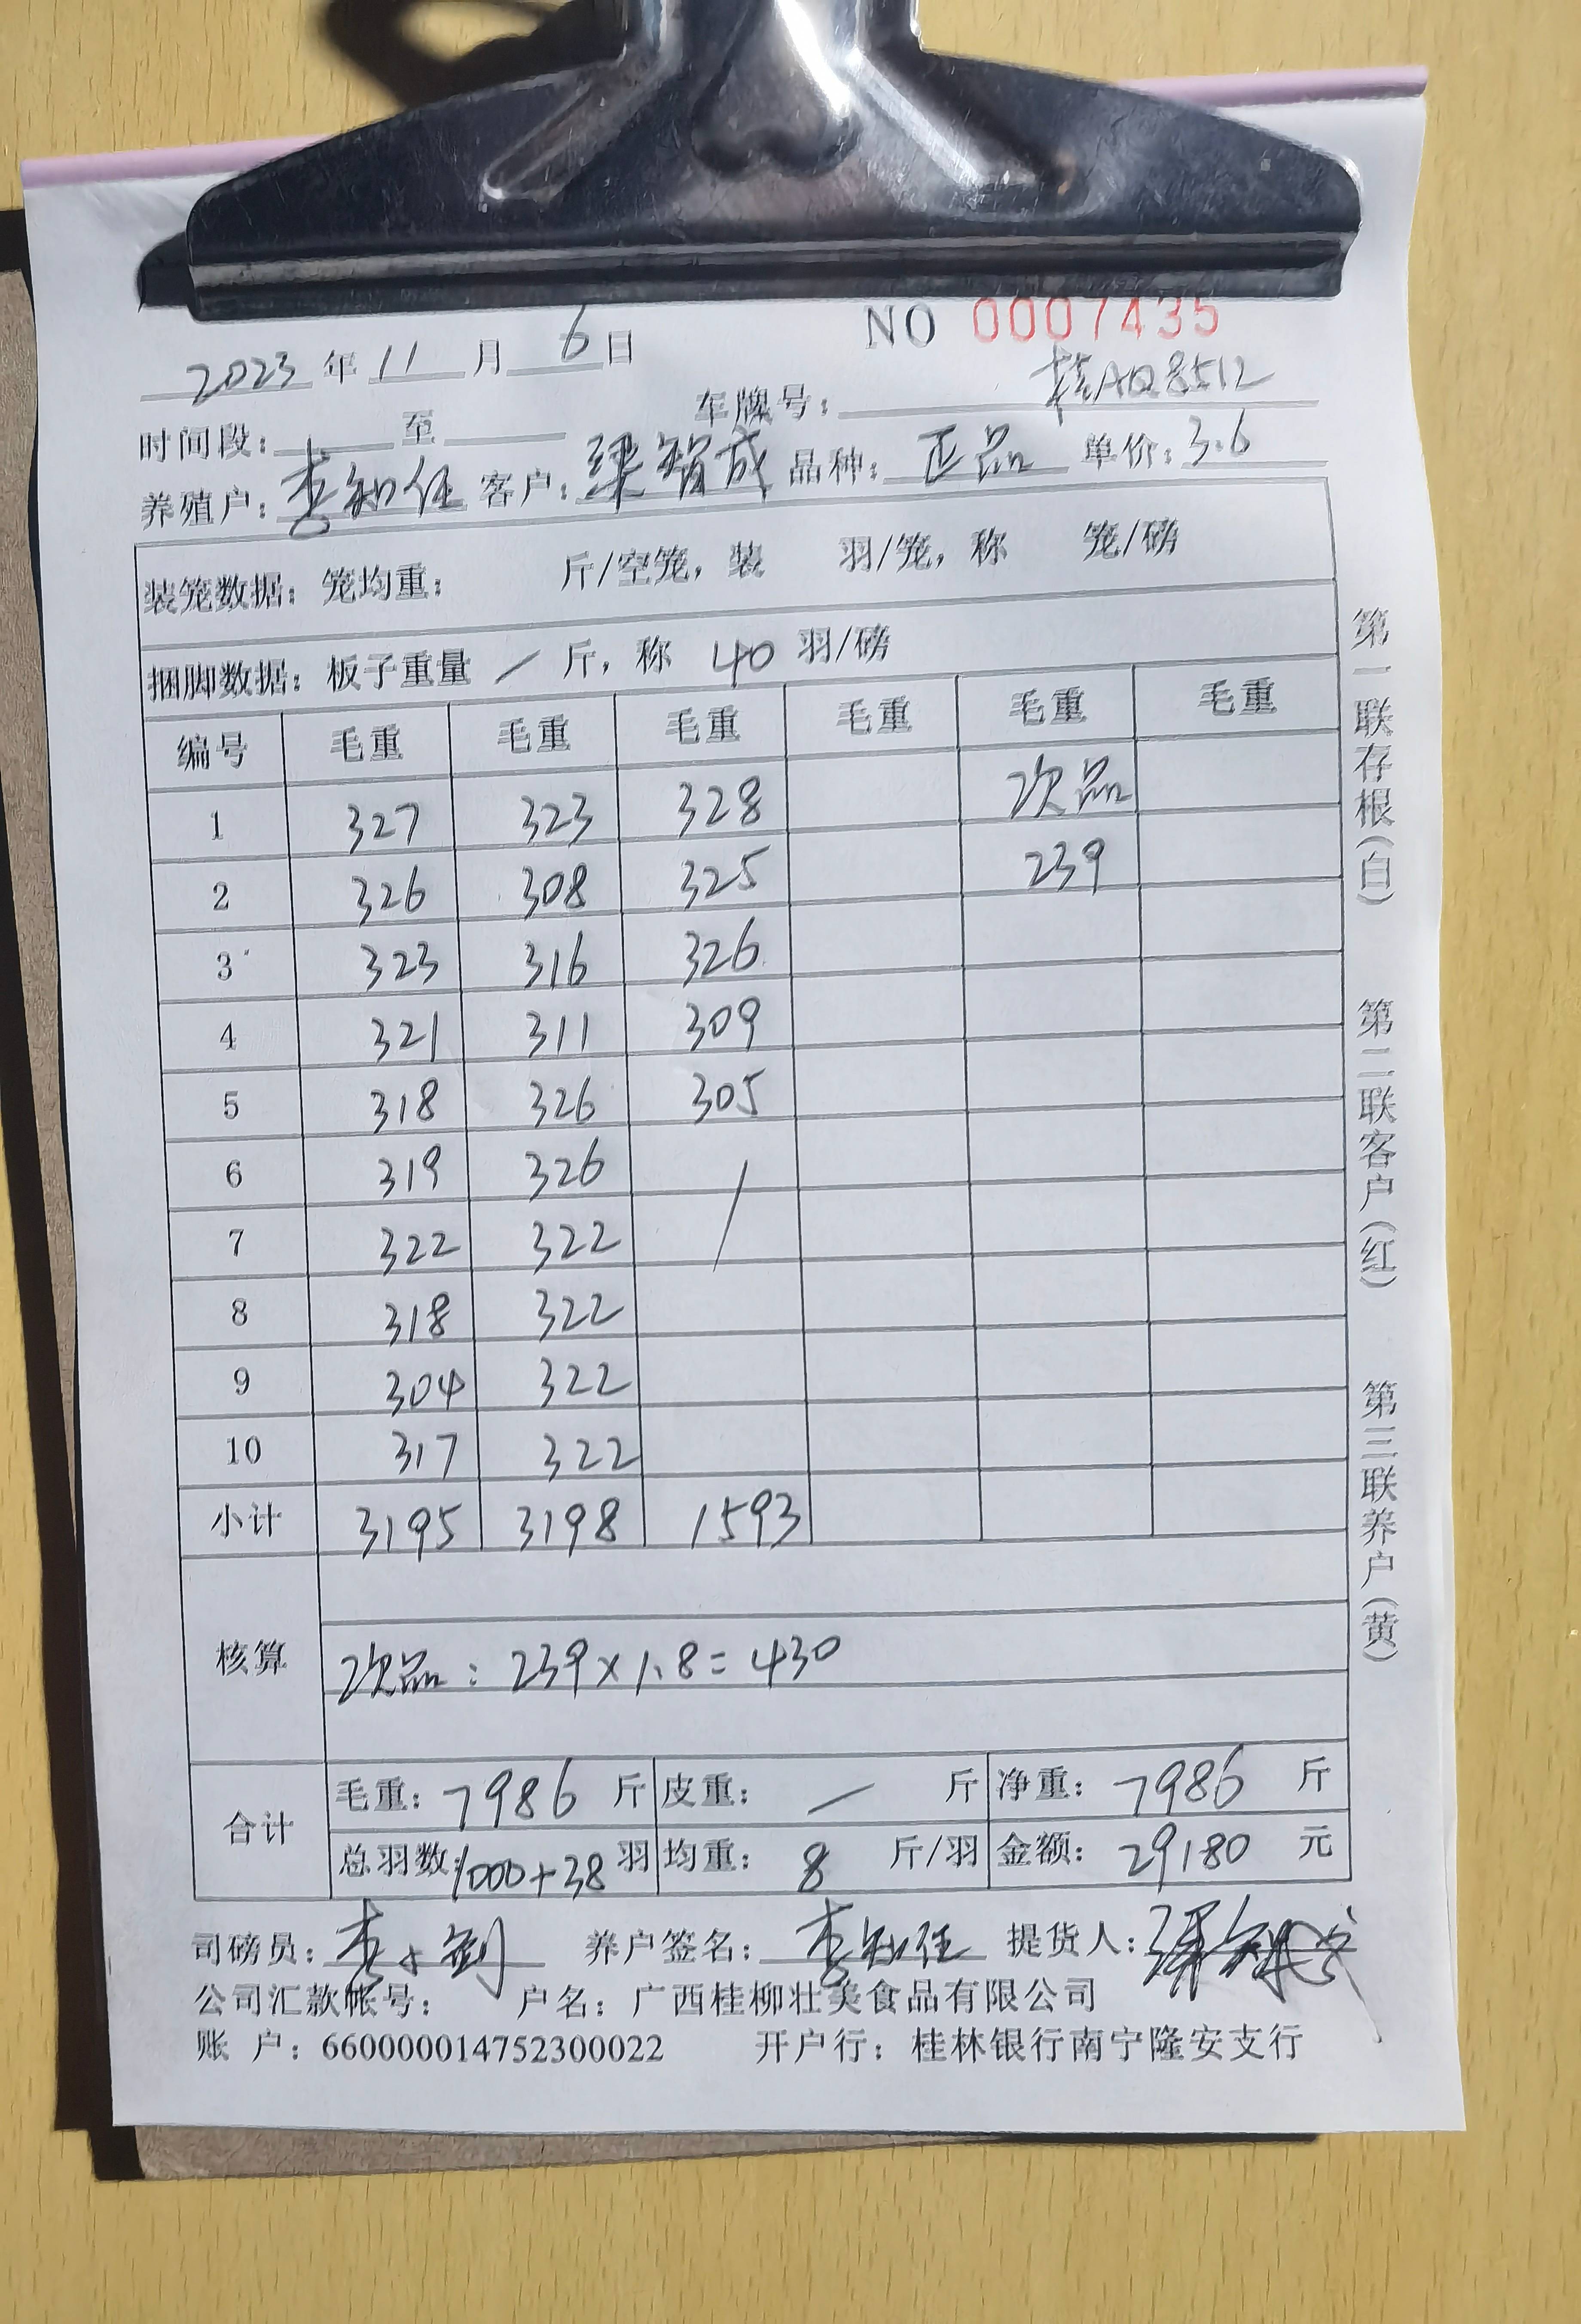 NO 0007435
2023 年 11 月 6 日
车牌号: 桂AQ8512
时间段: 至
养殖户: 李知任 客户: 梁智成 品种: 正品 单价: 3.6
装笼数据: 笼均重: 斤/空笼, 装 羽/笼, 称 笼/磅
捆脚数据: 板子重量 / 斤, 称 40 羽/磅
编号 毛重 毛重 毛重 毛重 毛重 毛重
1 327 323 328 次品
2 326 308 325 239
3 323 316 326
4 321 311 309
5 318 326 305
6 319 326 /
7 322 322
8 318 322
9 304 322
10 317 322
小计 3195 3198 1593
核算 次品: 239×1.8=430
合计 毛重: 7986 斤 皮重: / 斤 净重: 7986 斤
总羽数: 1000+38 羽 均重: 8 斤/羽 金额: 29180 元
司磅员: 养户签名: 李知任 提货人: 梁智成
公司汇款帐号: 户名: 广西桂柳壮美食品有限公司
账 户: 660000014752300022 开户行: 桂林银行南宁隆安支行
第一联存根(白) 第二联客户(红) 第三联养户(黄)